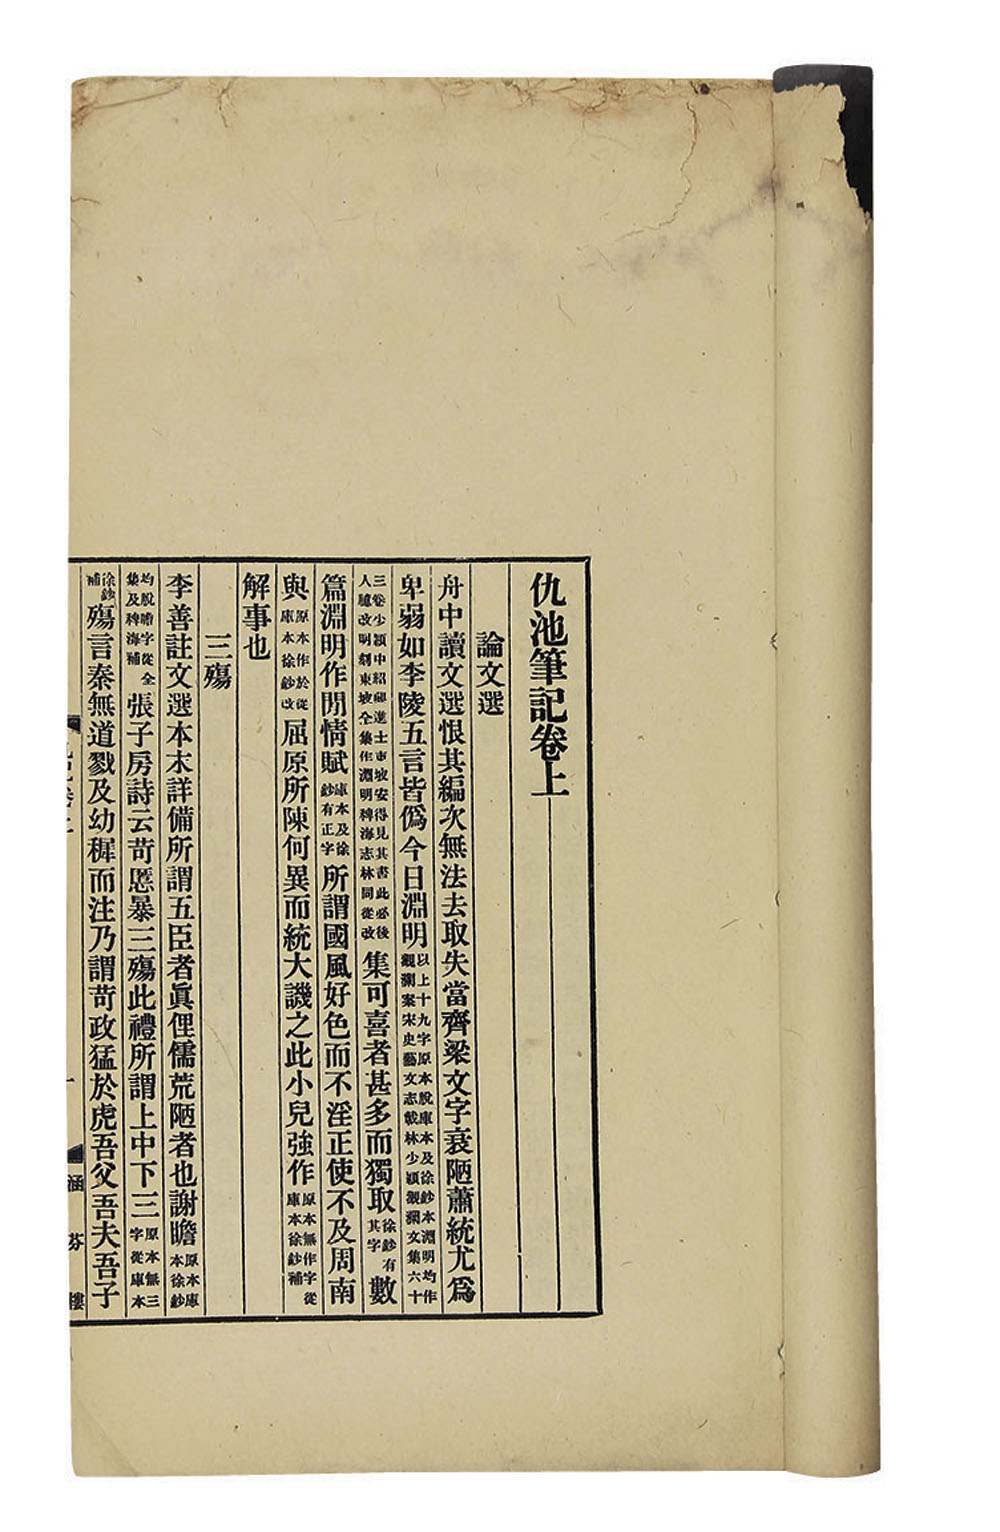 仇池筆記卷上
論文選
舟中讀文選恨其編次無法去取失當齊梁文字衰陋蕭統尤爲
卑弱如李陵五言皆僞今日淵明以上十九字原本脫庫本及徐鈔本淵明均作觀瀾案宋史藝文志載林少穎觀瀾文集六十
三卷少穎中紹興進士東坡安得見其書此必後人臆改明刻東坡全集作淵明稗海志林同從改集可喜者甚多而獨取徐鈔有其字數
篇淵明作閒情賦庫本及徐鈔有正字所謂國風好色而不淫正使不及周南
與原本作於從庫本徐鈔改屈原所陳何異而統大譏之此小兒強作原本無作字從庫本徐鈔補
解事也
三殤
李善註文選本末詳備所謂五臣者眞俚儒荒陋者也謝瞻原本庫本徐鈔
均脫瞻字從全集及稗海補張子房詩云苛慝暴三殤此禮所謂上中下三原本無三字從庫本
徐鈔補殤言秦無道戮及幼穉而注乃謂苛政猛於虎吾父吾夫吾子
涵芬樓